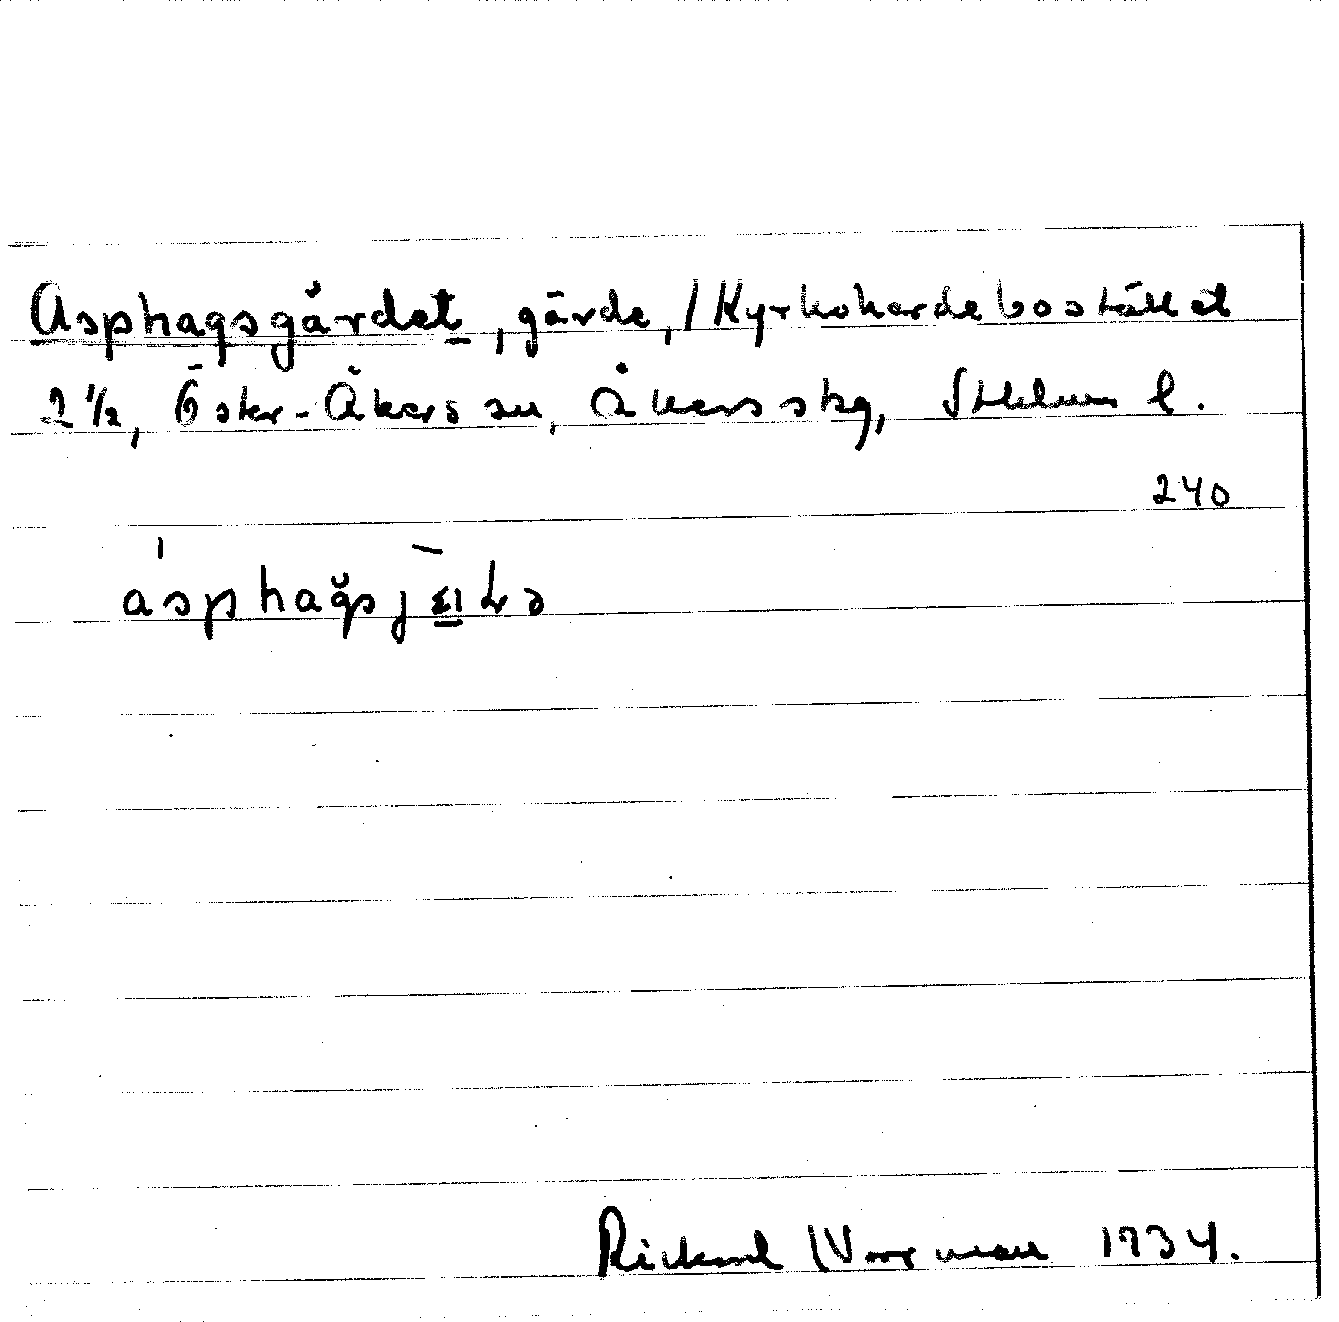 Asphagsgärdet, gärde, / Kyrkoherdebostället
2 1/2, Öster-Åkers sn, Åkers skg, Sthlms l.
240
asphaǧsjɛ̱ɩ
Rickard Norrman 1934.